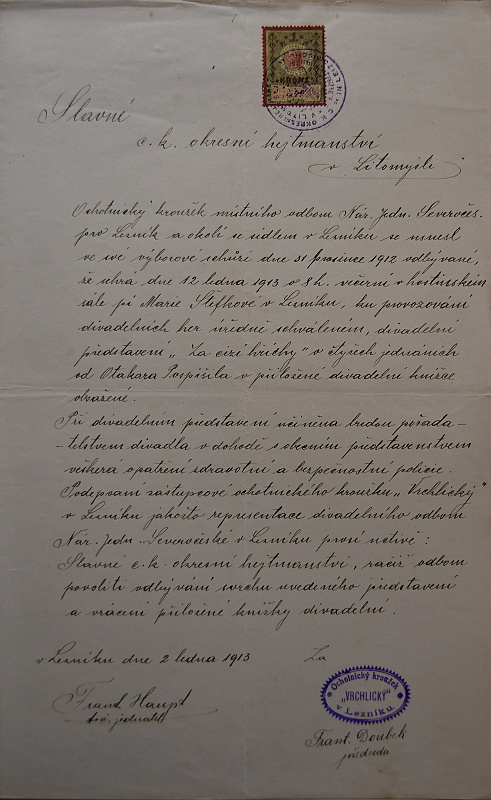 1
KORUNA
Slavné
c. k. okresní hejtmanství
v Litomyšli
Ochotnický kroužek místního odboru Nár. Jedn. Severočes.
pro Lezník a okolí se sídlem v Lezníku se usnesl
ve své výborové schůzi dne 31 prosince 1912 odbývané,
že sehrá dne 12 ledna 1913 o 8 h. večerní v hostinském
sále pí Marie Steflkové v Lezníku, ku provozování
divadelních her úředně schváleném, divadelní
představení „Za cizí hříchy" v čtyřech jednáních
od Otakara Pospíšila v přiložené divadelní knížce
obsažené.
Při divadelním představení učiněna budou pořada-
-telstvem divadla v dohodě s obecním představenstvem
veškerá opatření zdravotní a bezpečnostní policie.
Podepsaní zástupcové ochotnického kroužku „Vrchlický"
v Lezníku jakožto representace divadelního odboru
Nár. Jedn. Severočeské v Lezníku prosí uctivě:
Slavné c. k. okresní hejtmanství, račiž odboru
povoliti odbývání svrchu uvedeného představení
a vrácení přiložené knížky divadelní.
v Lezníku dne 2 ledna 1913
Za
Frant. Haupt
jednatel
Ochotnický kroužek
„VRCHLICKÝ"
v Lezníku
Frant. Doubek
předseda